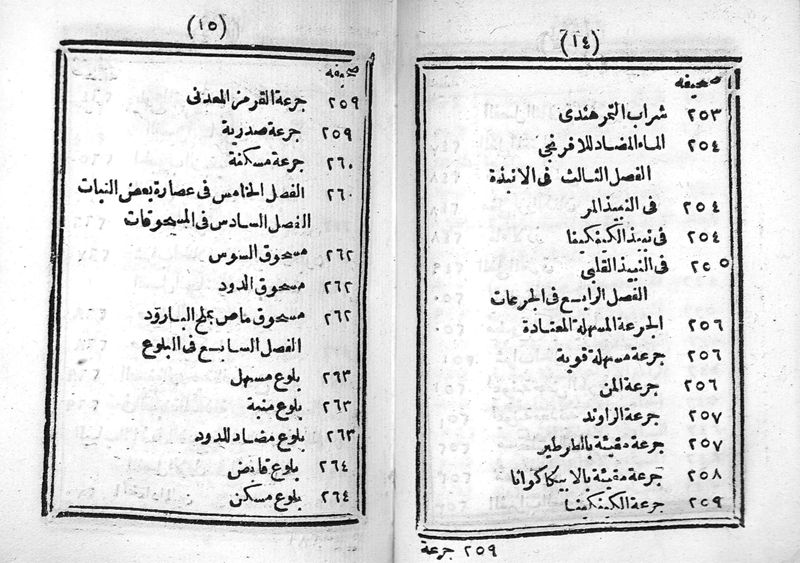 (١٤)
صحيفه
٢٥٣ شراب التمر هندى
٢٥٤ الماء المضاد للافرنجى
الفصل الثالث فى الانبذة
٢٥٤ فى النبيذ المر
٢٥٤ فى نبيذ الكينكينا
٢٥٥ فى النبيذ القلبى
الفصل الرابع فى الجرعات
٢٥٦ الجرعة المسهلة المعتادة
٢٥٦ جرعة مسهلة قوية
٢٥٦ جرعة المن
٢٥٧ جرعة الراوند
٢٥٧ جرعة مقيئة بالطرطير
٢٥٨ جرعة مقيئة بالايبكاكوانا
٢٥٩ جرعة الكينكينا
٢٥٩ جرعة
(١٥)
صحيفه
٢٥٩ جرعة القرمز المعدنى
٢٥٩ جرعة صدرية
٢٦٠ جرعة مسكنة
٢٦٠ الفصل الخامس فى عصارة بعض النبات
الفصل السادس فى المسحوقات
٢٦٢ مسحوق السوس
٢٦٢ مسحوق الدود
٢٦٢ مسحوق ماص بملح البارود
الفصل السابع فى البلوع
٢٦٣ بلوع مسهل
٢٦٣ بلوع منبة
٢٦٣ بلوع مضاد للدود
٢٦٤ بلوع قابض
٢٦٤ بلوع مسكن